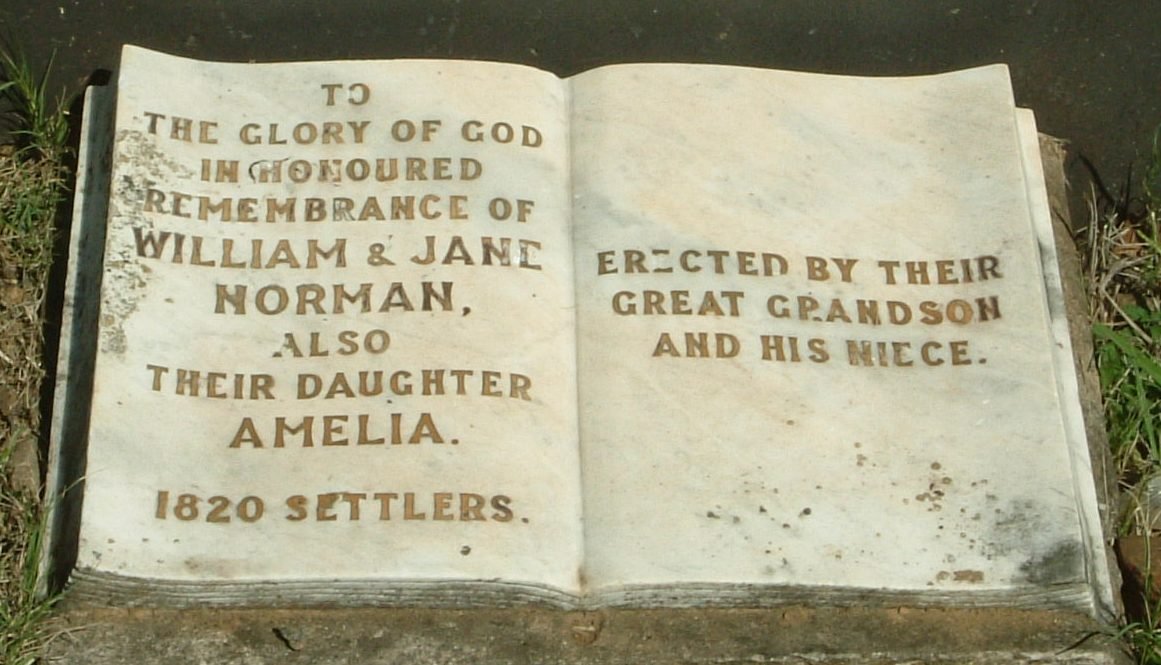 TO
THE GLORY OF GOD
IN HONOURED
REMEMBRANCE OF
WILLIAM & JANE
NORMAN,
ALSO
THEIR DAUGHTER
AMELIA.
1820 SETTLERS.
ERECTED BY THEIR
GREAT GRANDSON
AND HIS NIECE.